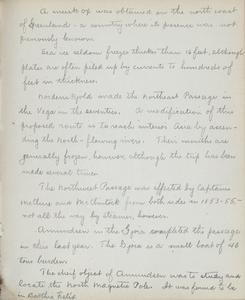 A musk ox was obtained on the north coast
of Greenland - a country where its presence was not
previously known.
Sea ice seldom freezes thicker than 15 feet, although
plates are often piled up by currents to hundreds of
feet in thickness.
Nordenskjold made the northeast Passage in
the Vega in the seventies. A modification of this
proposed route is to reach interior Asia by ascen-
ding the north-flowing rivers. Their mouths are
generally frozen, however, although the trip has been
made several times.
The Northwest Passage was effected by Captains
McClure and McClintock from both sides in 1853-55-
not all the way by steamer, however.
Amundsen in the Gjoa completed the passage
in this last year. The Gjoa is a small boat of 40
tons burden.
The chief object of Amundsen was to study and
locate the North Magnetic Pole. It was found to be
in Boothia Felix.